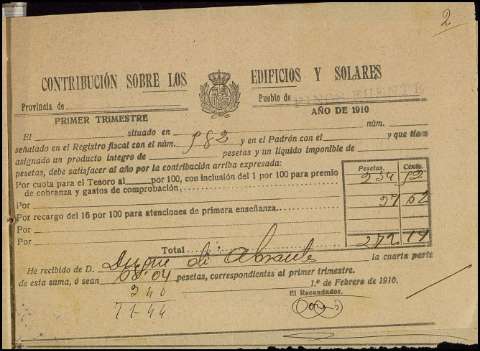 2
CONTRIBUCIÓN SOBRE LOS EDIFICIOS Y SOLARES
Provincia de
Pueblo de
PRIMER TRIMESTRE
AÑO DE 1910
El situado en núm.
señalado en el Registro fiscal con el núm. 982 y en el Padrón con el y que tiene
asignado un producto íntegro de pesetas y un líquido imponible de
pesetas, debe satisfacer al año por la contribución arriba expresada:
Pesetas. Cénts.
Por cuota para el Tesoro al por 100, con inclusión del 1 por 100 para premio
de cobranza y gastos de comprobación.
Por
Por recargo del 16 por 100 para atenciones de primera enseñanza.
Por
Por
Total 272 14
He recibido de D. Duque de Abrante la cuarta parte
de esta suma, ó sean 68'04 pesetas, correspondientes al primer trimestre.
1.º de Febrero de 1910.
El Recaudador,
3 40
71-44